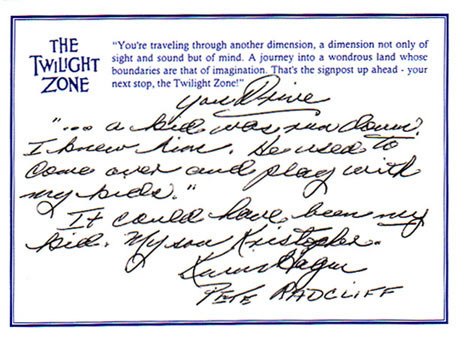 THE
TWILIGHT
ZONE
"You're traveling through another dimension, a dimension not only of
sight and sound but of mind. A journey into a wondrous land whose
boundaries are that of imagination. That's the signpost up ahead - your
next stop, the Twilight Zone!"
You Drive
"... a kid was run down.
I knew him. He used to
come over and play with
my kids."
It could have been my
kid. My son Kristopher.
Kevin Hagen
PETE RADCLIFF